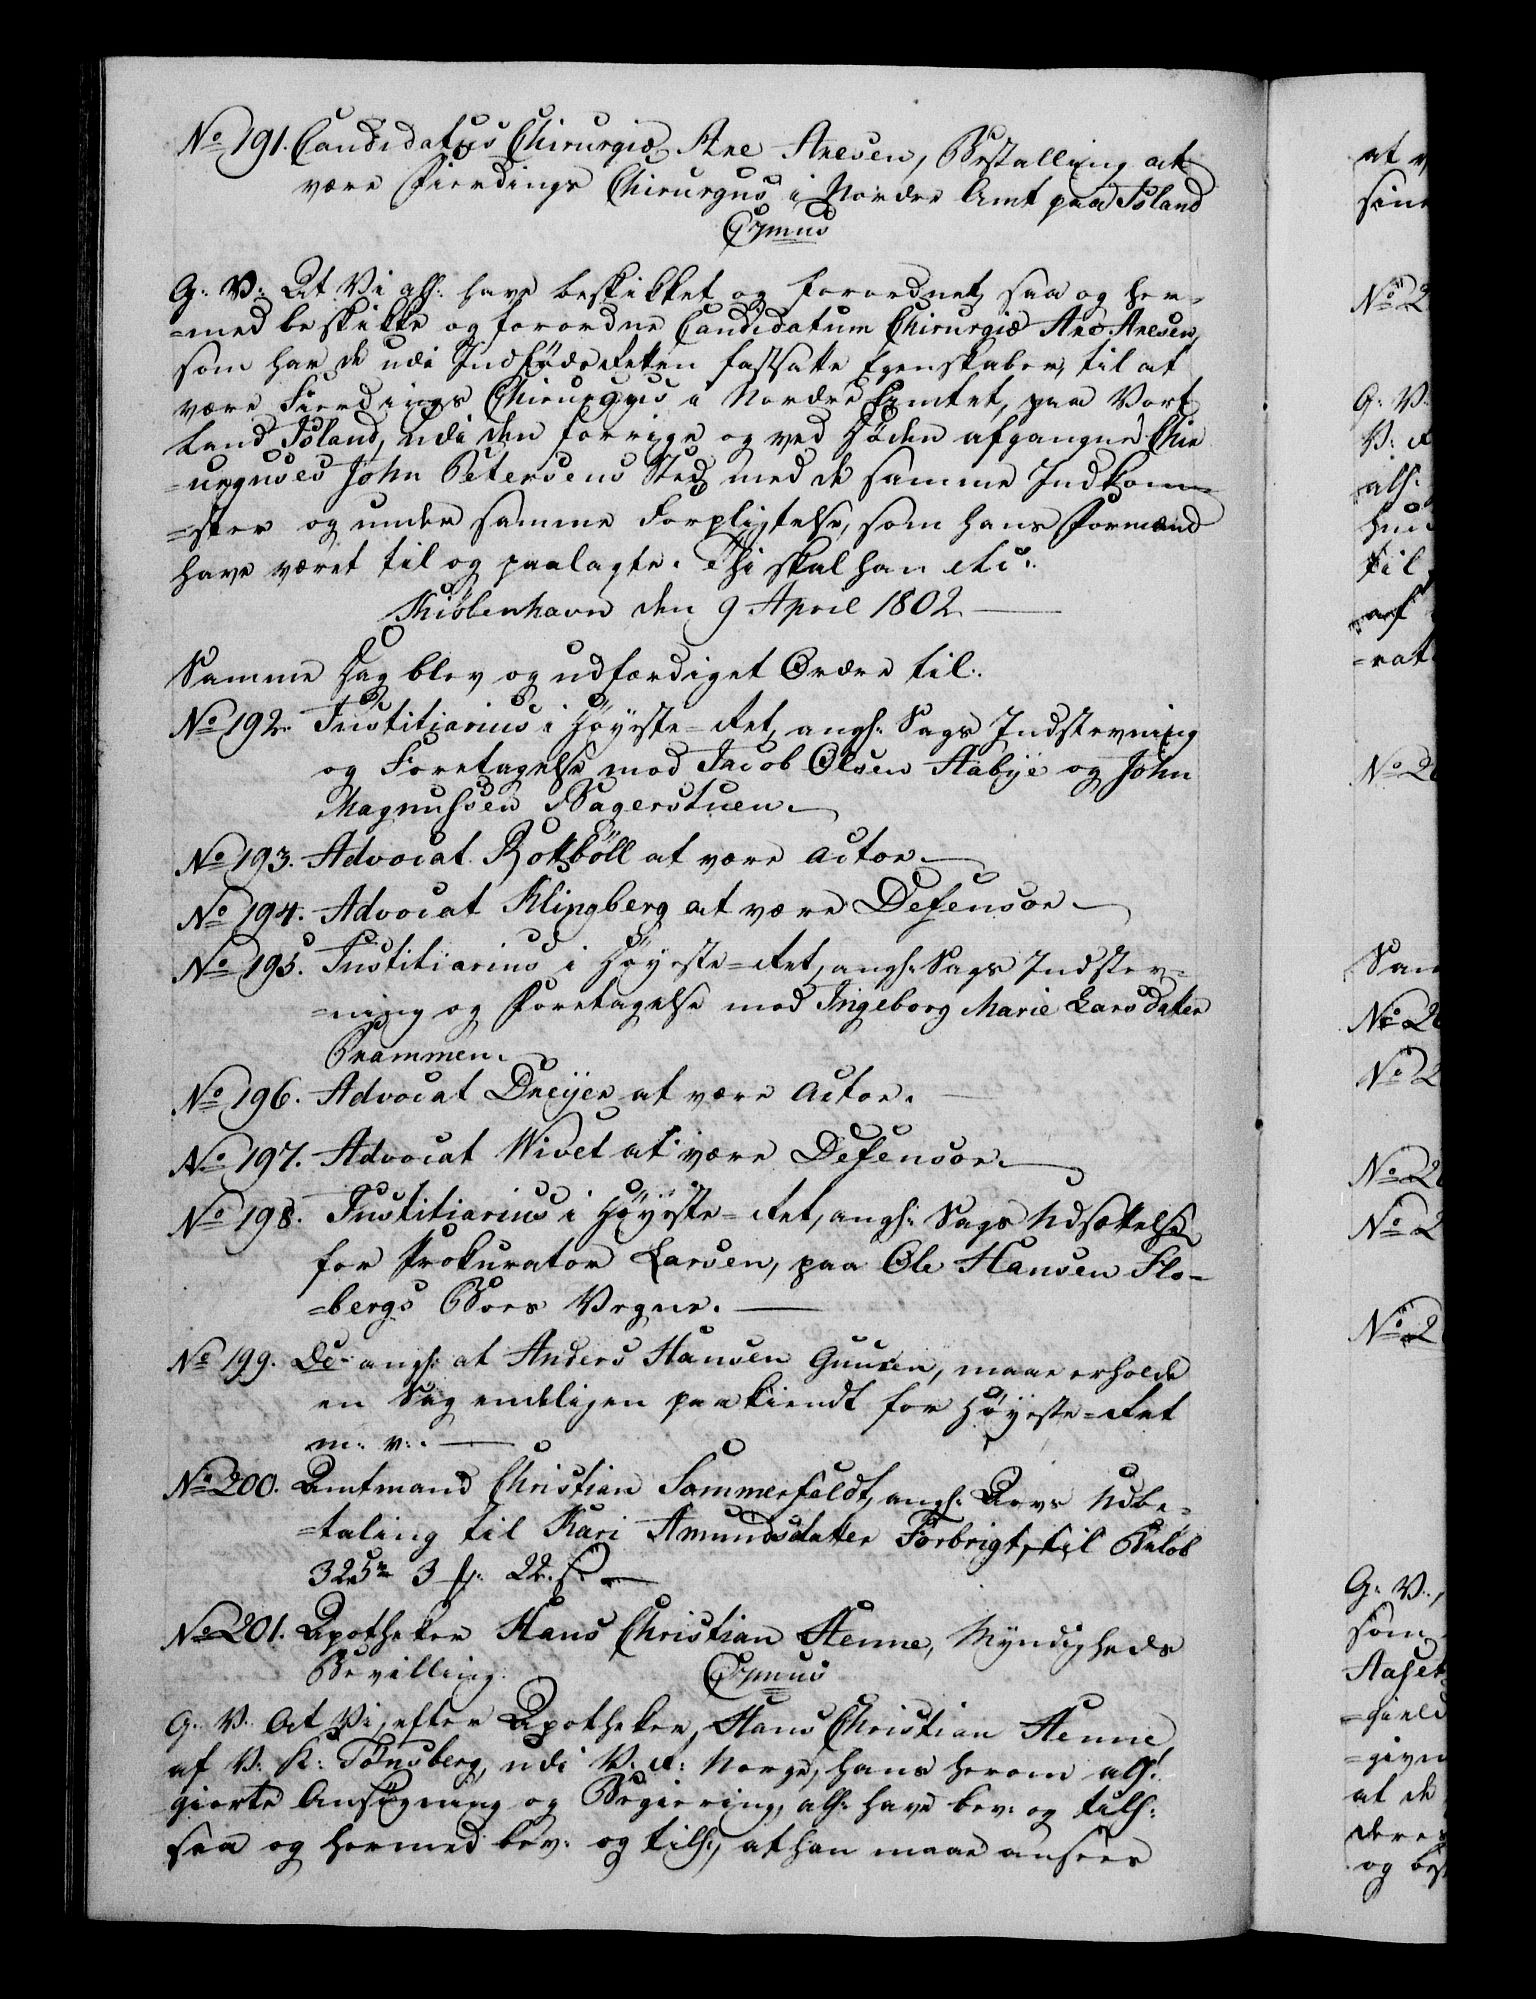 No 191. Candidatus Chirurgiæ Are Aresen, Bestalling at
være Fierdings Chirurgus i Nordre Amt paa Island
G: V: At Vi alh: have beskikket og forordnet, saa og her-
=med beskikke og forordne Candidatum Chirurgiæ Are Aresen,
som har de udi Indføds Retten fastsatte Egenskaber, til at
være Fierdings Chirurgus i Nordre Amtet, paa Vort
Land Island, udi den forrige og ved Døden afgangne Chir
=urguses John Petersens Sted, med de samme Indkom-
=ster og under samme Forpligtelse, som hans Formænd
have været til og paalagte. Thi skal han etc:
Kiøbenhavn den 9 April 1802.
Samme Dag blev og udfærdiget Ordre til:
No 192. Justitiarius i Høyeste=Ret, angh: Sags Indstevning
og Foretagelse mod Jacob Olsen Aabye og John
Magnussen Bagerstuen.
No 193. Advocat Rottbøll at være Actor.
No 194. Advocat Klingberg at være Defensor.
No 195. Justitiarius i Høyeste=Ret, angh: Sags Indstev-
=ning og Foretagelse mod Ingeborg Marie Larsdatter
Brammen.
No 196. Advocat Dreijer at være Actor.
No 197. Advocat Wivet at være Defensor.
No 198. Justitiarius i Høyeste=Ret, angh: Sags Udsættelse
for Prokurator Larsen, paa Ole Hansen Flo-
=bergs Boes Vegne.
No 199. De- angh: at Anders Hansen Guuren, maae erholde
en Sag endeligen paakiendt for Høyeste=Ret
m: v:.
No 200. Amtmand Christian Sommerfeldt, angh: Arvs Udbe-
=taling til Kari Amundsdatter Forbrigt, til Beløb
325 rd 3 ß: 22 s.
No 201. Apotheker Hans Christian Henne, Myndigheds
Bevilling.
G: V: At Vi, efter Apotheker, Hans Christian Henne,
af V: K: Tønsberg, udi V: R: Norge, hans herom alh:
giorte Ansøgning og Begiering, alh: have bev: og tilh:
saa og hermed bev: og tilh:, at han maae ansees